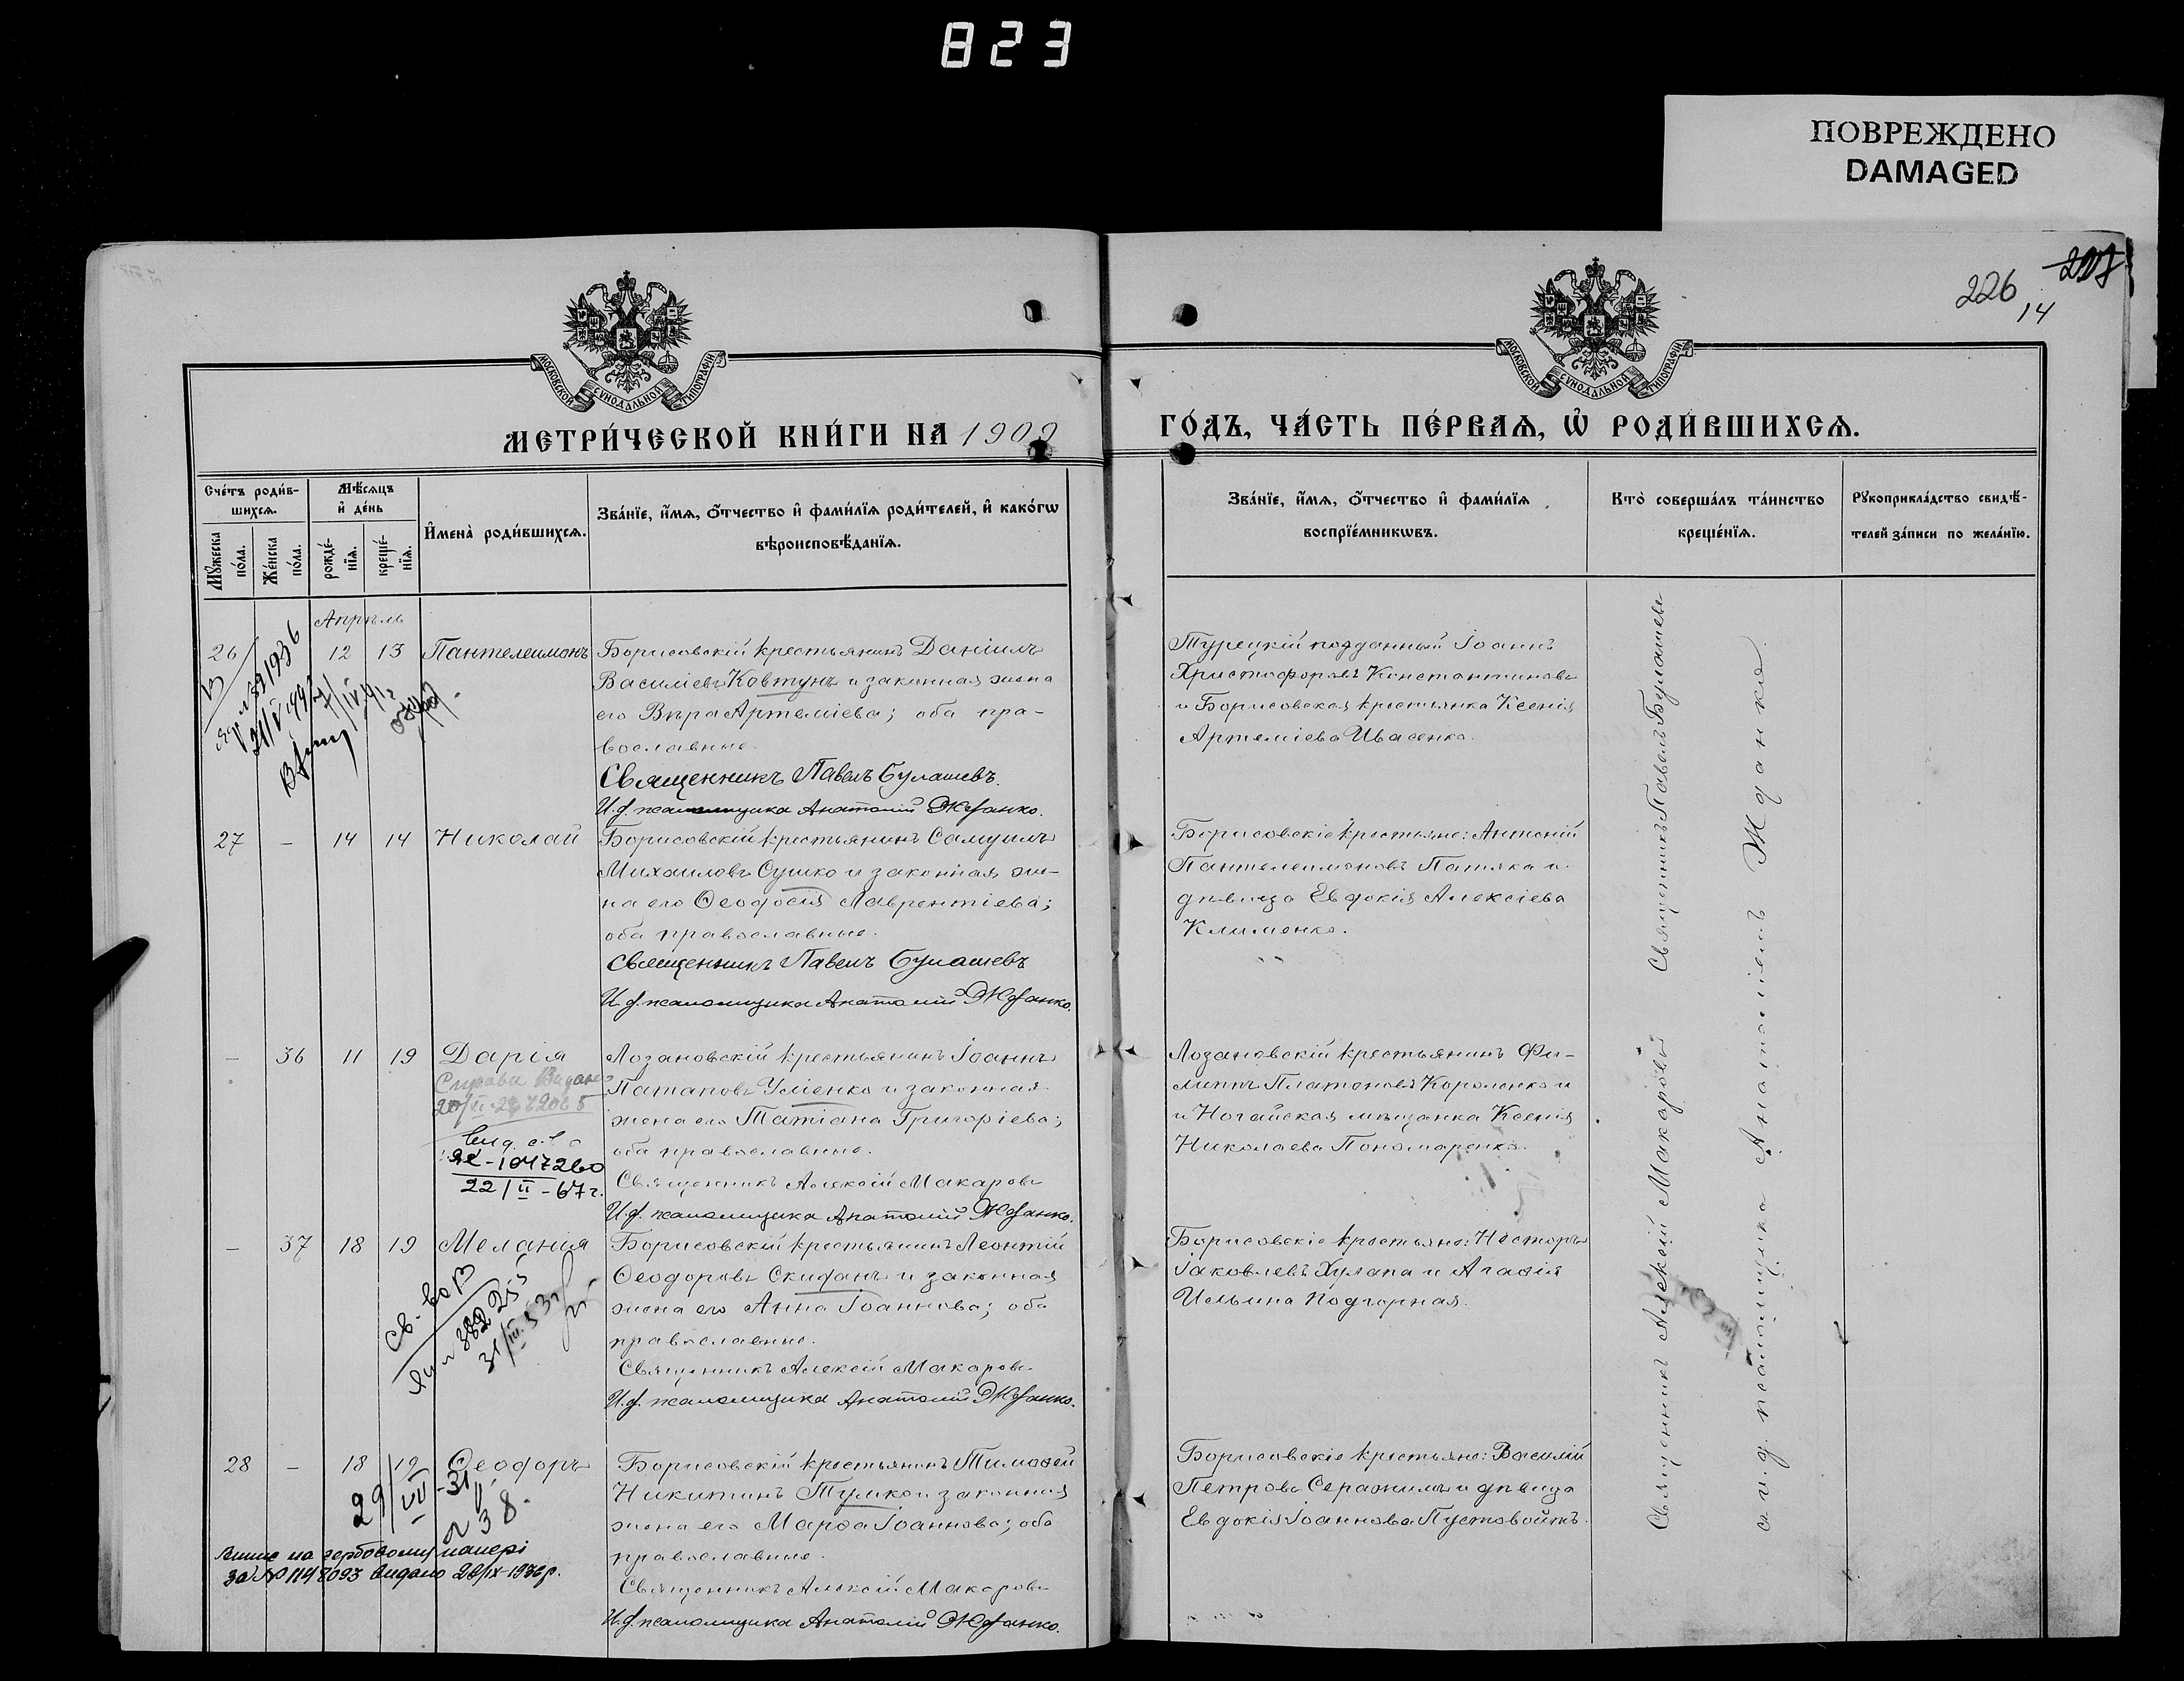 823
ПОВРЕЖДЕНО
DAMAGED
207
226
14
МОСКОВСКОЙ СѴНОДАЛЬНОЙ ТИПОГРАФІИ
МОСКОВСКОЙ СѴНОДАЛЬНОЙ ТИПОГРАФІИ
МЕТРИ́ЧЕСКОЙ КНИ́ГИ НА 1909
ГО́ДЪ, ЧА́СТЬ ПЕ́РВАѦ, Ѽ РОДИ́ВШИХСѦ.
Сче́тъ роди́в-
шихсѧ.
Мꙋ́жеска по́ла.
Же́нска по́ла.
Мѣ́сѧцъ
и҆ де́нь
рожде́-
нїѧ.
креще́-
нїѧ.
И҆мена̀ роди́вшихсѧ.
Зва́нїе, и҆́мѧ, ѻ҆́тчество и҆ фами́лїѧ роди́телей, и҆ како́гѡ
вѣроисповѣ́данїѧ.
Зва́нїе, и҆́мѧ, ѻ҆́тчество и҆ фами́лїѧ
воспрїе́мникѡвъ.
Кто̀ соверша́лъ та́инство
креще́нїѧ.
Рꙋкоприкла́дство свидѣ́-
телей за́писи по жела́нїю.
Апрѣль
26 12 13 Пантелеимонъ
Борисовскій крестьянинъ Даніилъ
Василіевъ Ковтунъ и законная жена
его Вѣра Артеміева; оба пра-
вославные.
Священникъ Павелъ Булашевъ.
И.д. псаломщика Анатолій Жданко.
Турецкій подданный Іоаннъ
Христофоровъ Константиновъ
и Борисовская крестьянка Ксенія
Артеміева Ивасенко.
27 – 14 14 Николай
Борисовскій крестьянинъ Самуилъ
Михаиловъ Сушко и законная же-
на его Ѳеодосія Лаврентіева;
оба православные.
Священникъ Павелъ Булашевъ
И.д. псаломщика Анатолій Жданко.
Борисовскіе крестьяне: Антоній
Пантелеимоновъ Патяка и
дѣвица Евдокія Алексіева
Клименко.
– 36 11 19 Дарія
22/II-67г.
Лозановскій крестьянинъ Іоаннъ
Патаповъ Усіенко и законная
жена его Татіана Григоріева;
оба православные.
Священникъ Алексій Макаровъ
И.д. псаломщика Анатолій Жданко.
Лозановскій крестьянинъ Фи-
липпъ Платоновъ Короленко и
и Ногайская мѣщанка Ксенія
Николаева Пономаренко.
– 37 18 19 Меланія
Св-во
38225
Борисовскій крестьянинъ Леонтій
Ѳеодоровъ Скиданъ и законная
жена его Анна Іоаннова; оба
православные.
Священникъ Алексій Макаровъ
И.д. псаломщика Анатолій Жданко.
Борисовскіе крестьяне: Несторъ
Іаковлевъ Хулапа и Агаѳія
Ильина Подгорная.
28 – 18 19 Ѳеодоръ
29/VII-31
38.
на гербовому папері
за № 1148093 видано 28/IX-1936р.
Борисовскій крестьянинъ Тимоѳей
Никитинъ Тумко и законная
жена его Марѳа Іоаннова; оба
православные.
Священникъ Алексій Макаровъ
И.д. псаломщика Анатолій Жданко.
Борисовскіе крестьяне: Василій
Петровъ Серажимъ и дѣвица
Евдокія Іоаннова Пустовойтъ.
Священникъ Алексій Макаровъ
Священникъ Павелъ Булашевъ
с и.д. псаломщика Анатоліемъ Жданко.